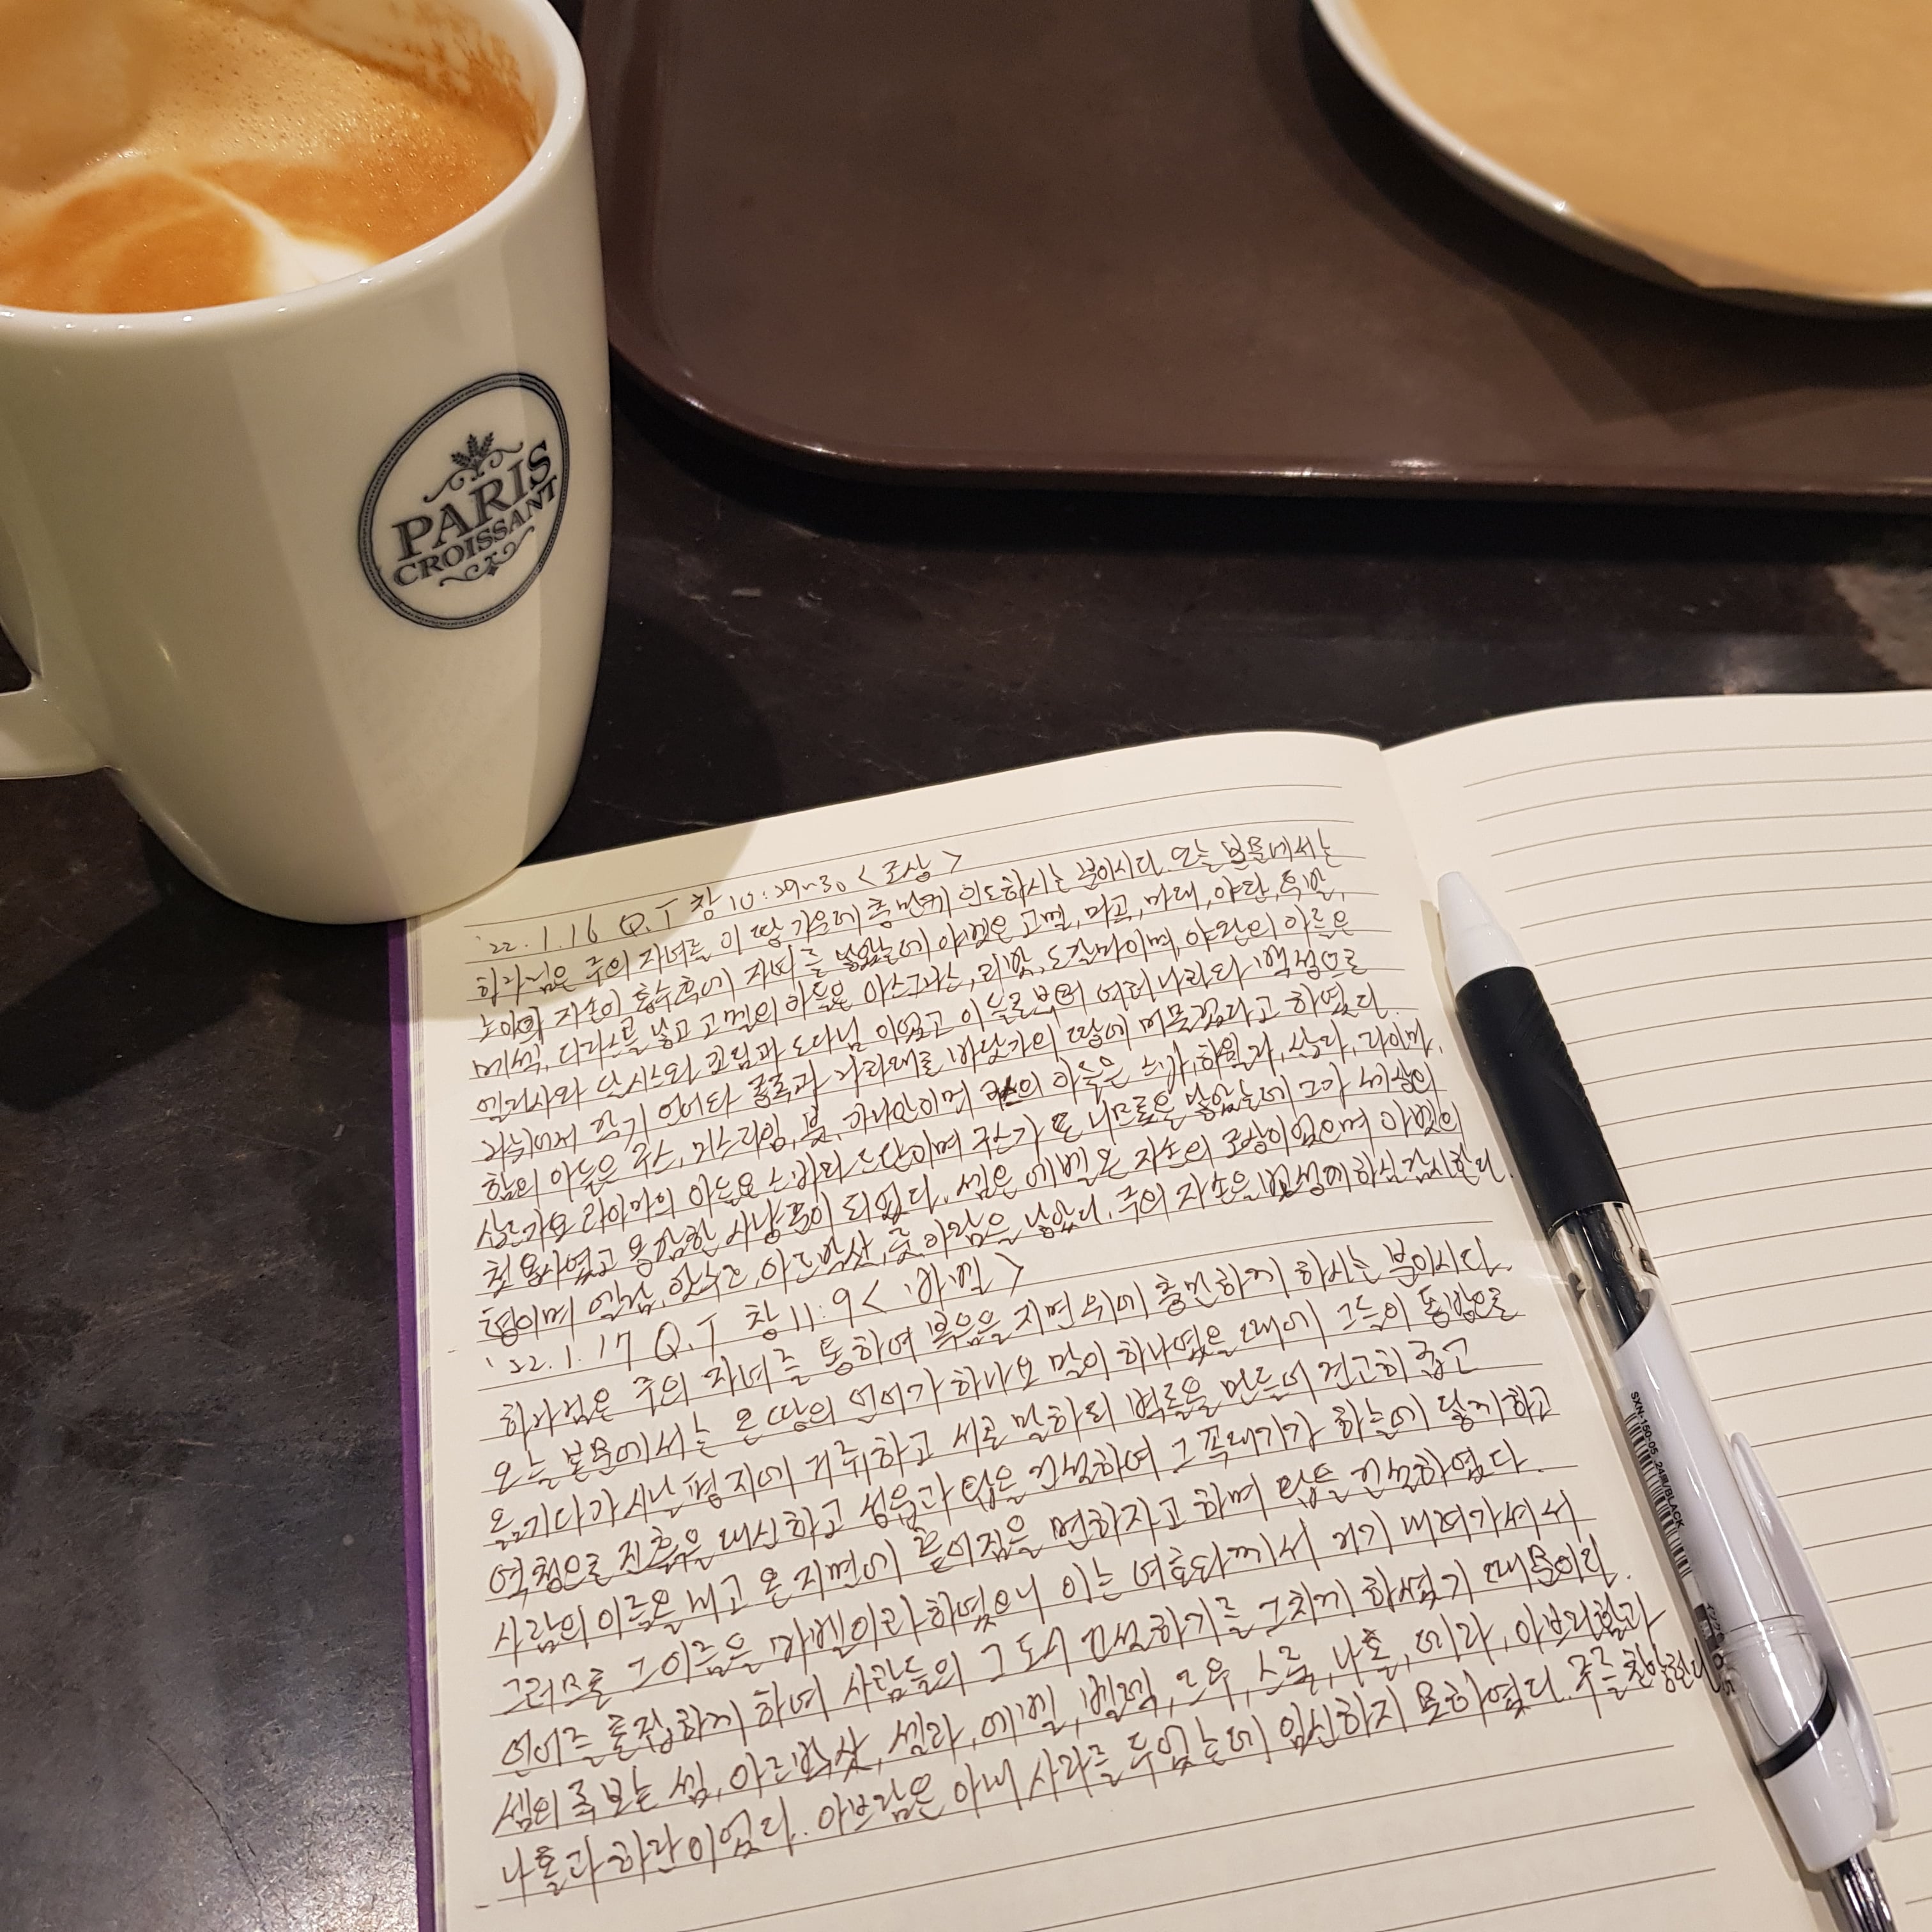 PARIS
CROISSANT
'22. 1. 16 Q.T 창 10:29~30 <조상>
하나님은 주의 자녀를 이 땅 가운데 충만케 인도하시는 분이시다. 오늘 본문에서는
노아의 자손이 홍수후에 자녀를 낳았는데 야벳은 고멜, 마곡, 마대, 야완, 두발,
메섹, 디라스를 낳고 고멜의 아들은 아스그나스, 리밧, 도갈마이며, 야완의 아들은
엘리사와 달시스와 깃딤과 도다님 이었고 이들로부터 여러나라와 백성으로
나뉘어서 각기 언어와 종족과 나라대로 바닷가의 땅에 머물렀다고 하였다.
함의 아들은 구스, 미스라임, 붓, 가나안이며 구스의 아들은 스바, 하윌라, 삽다, 라아마,
삽드가요 라아마의 아들은 스바와 드단이며 구스가 또 니므롯을 낳았는데 그가 세상의
첫 용사였고 용감한 사냥꾼이 되었다. 셈은 에벨 온 자손의 조상이었으며 야벳의
형이며 엘람, 앗수르, 아르박삿, 룻, 아람을 낳았다. 주의 자손을 번성케하심 감사한다.
'22. 1. 17 Q.T 창 11:9 <바벨>
하나님은 주의 자녀를 통하여 복음을 지면 위에 충만하게 하시는 분이시다.
오늘 본문에서는 온 땅의 언어가 하나요 말이 하나였을 때에 그들이 동방으로
옮기다가 시날 평지에 거주하고 서로 말하되 벽돌을 만들어 견고히 굽고
역청으로 진흙을 대신하고 성읍과 탑을 건설하여 그 꼭대기가 하늘에 닿게하고
사람의 이름을 내고 온 지면에 흩어짐을 면하자고 하며 탑을 건설하였다.
그러므로 그 이름을 바벨이라 하였으니 이는 여호와께서 거기 내려가셔서
언어를 혼잡하게 하여 사람들의 그 도시 건설하기를 그치게 하셨기 때문이라.
셈의 족보는 셈, 아르박삿, 셀라, 에벨, 벨렉, 르우, 스룩, 나홀, 데라, 아브라함과
나홀과 하란이었다. 아브람은 아내 사래를 두었는데 임신하지 못하였다. 주를 찬양한다.
SXN-150-05 BLACK